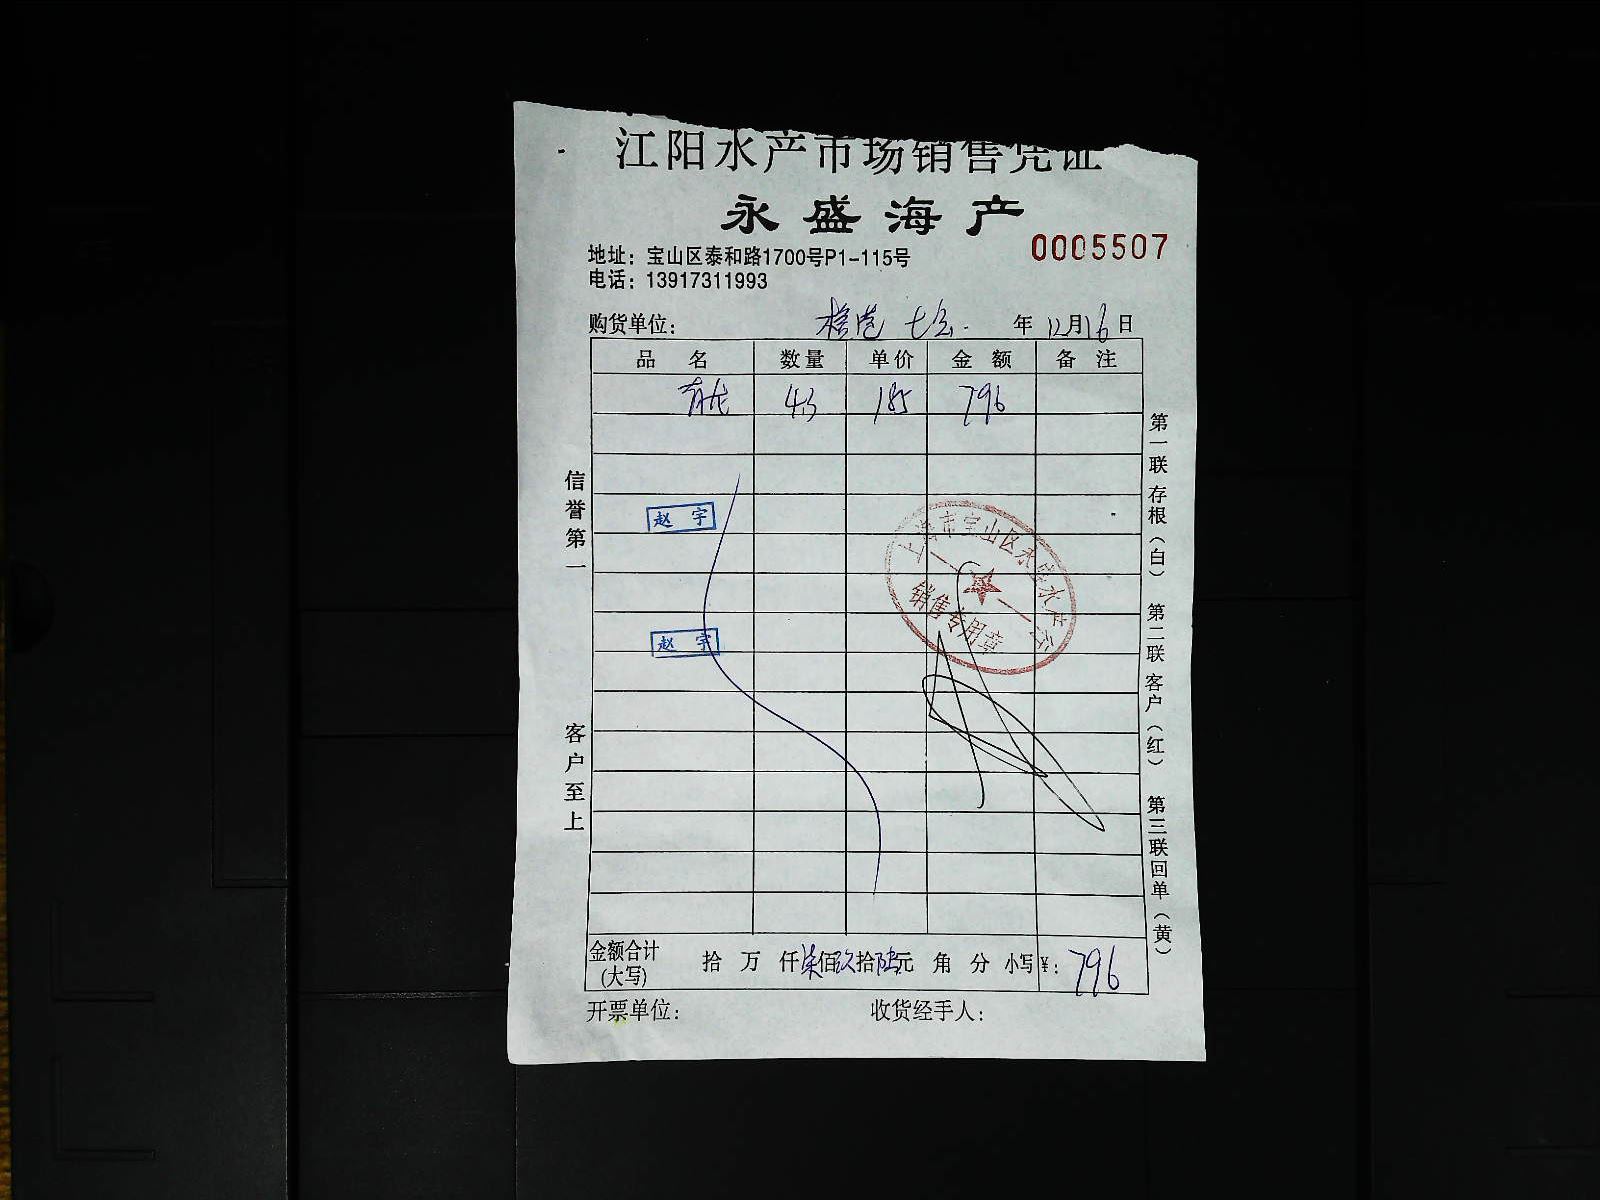 江阳水产市场销售凭证
永盛海产
0005507
地址：宝山区泰和路1700号P1-115号
电话：13917311993
购货单位： 年 12月16日
品 名 数量 单价 金 额 备 注
青龙 4.3 185 796
信誉第一
客户至上
赵 宇
赵 宇
上海市宝山区永盛水产行
销售专用章
第一联 存根（白） 第二联 客户（红） 第三联 回单（黄）
金额合计 拾 万 仟柒佰玖拾陆元 角 分 小写¥：796
(大写)
开票单位： 收货经手人：